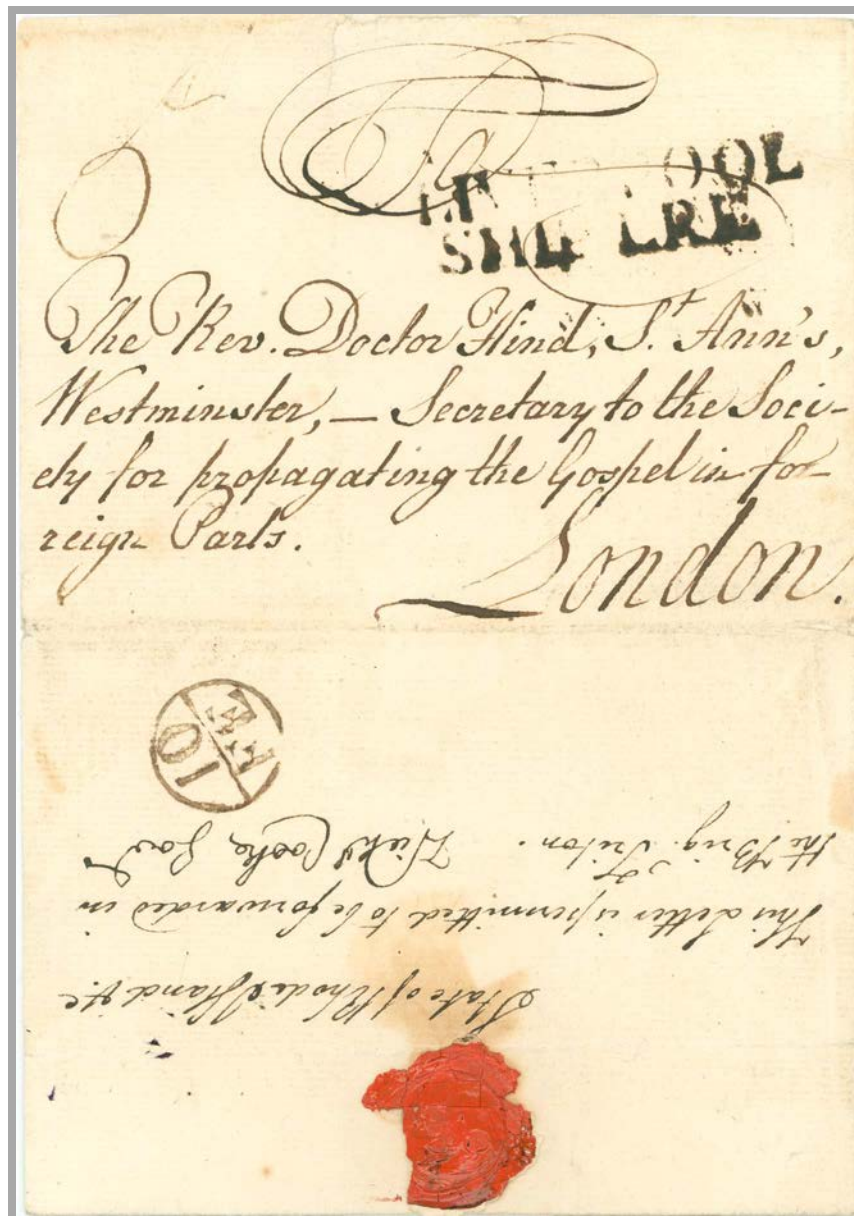 LIVERPOOL
SHIP LRE
The Rev. Doctor Hind, St. Ann's,
Westminster, — Secretary to the Soci-
ety for propagating the Gospel in fo-
reign Parts.
London.
10
FE
State of Rhode Island &c
This Letter is permitted to be forwarded in
the Brig. Triton. Nichs Cooke Govr